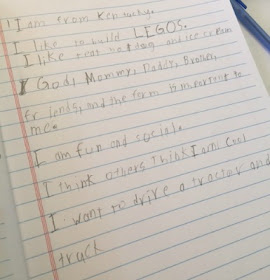 I am from Kentucky.
I like to build LEGOS.
I like meat hot dog and ice cream
God, Mommy, Daddy, Brother,
friends, and the farm is important to
me.
I am fun and social.
I think others think I am cool
I want to drive a tractor and
truck